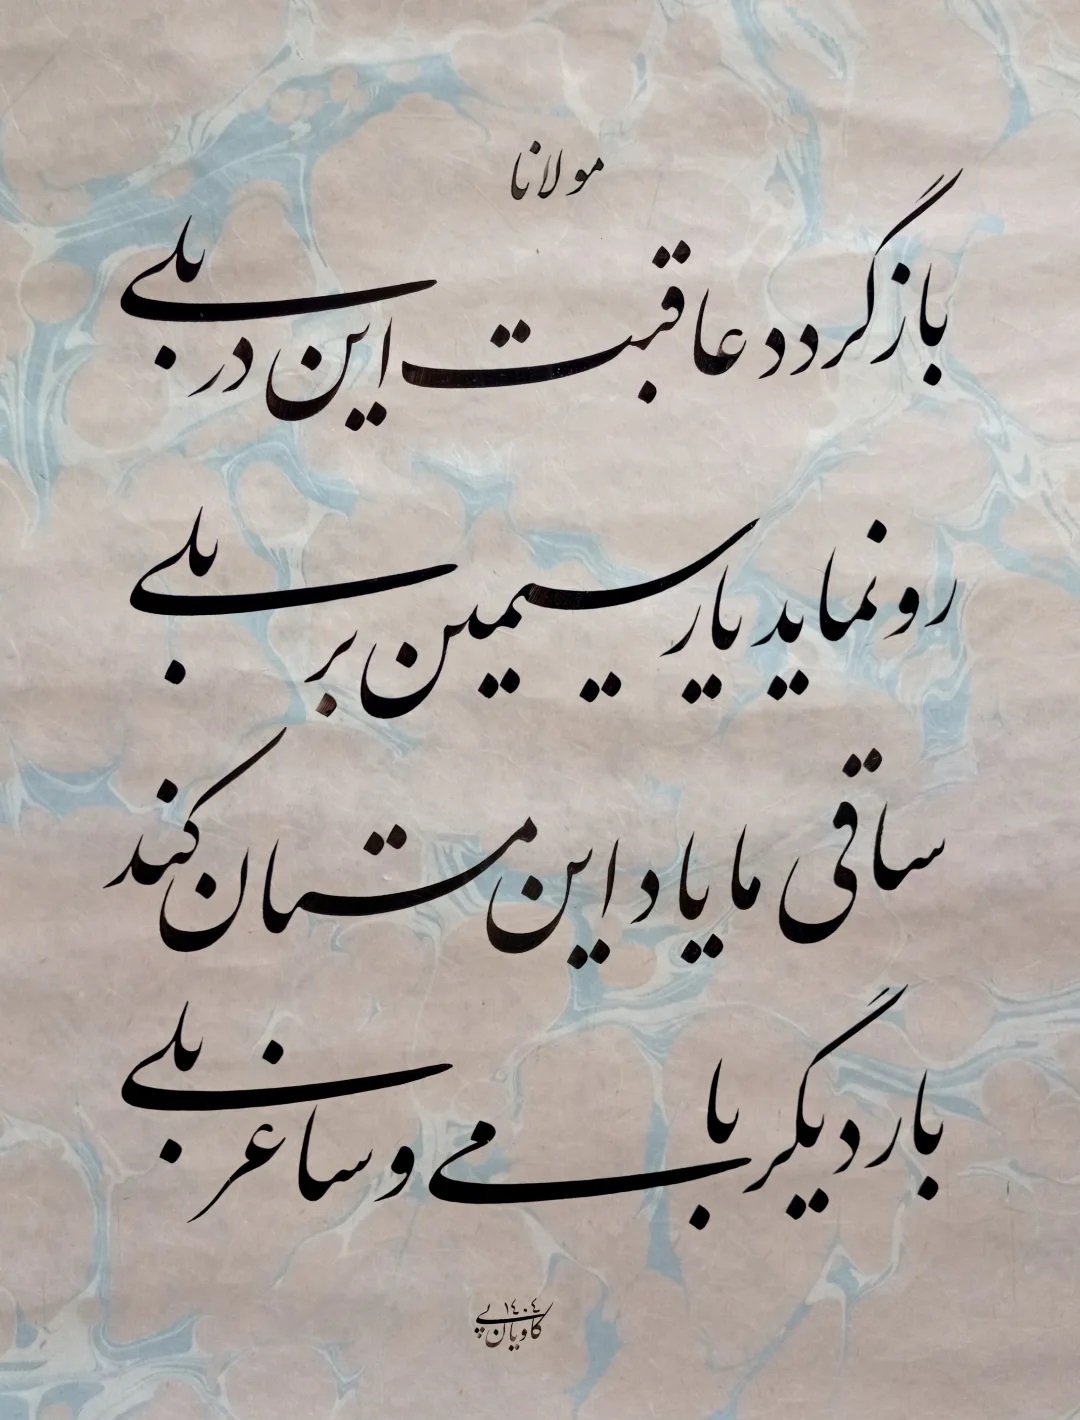 مولانا
باز گردد عاقبت این در بلی
رو نماید یار سیمین بر بلی
ساقی ما یاد این مستان کند
بار دیگر با می و ساغر بلی
کاویان پی ۱۴۰۴